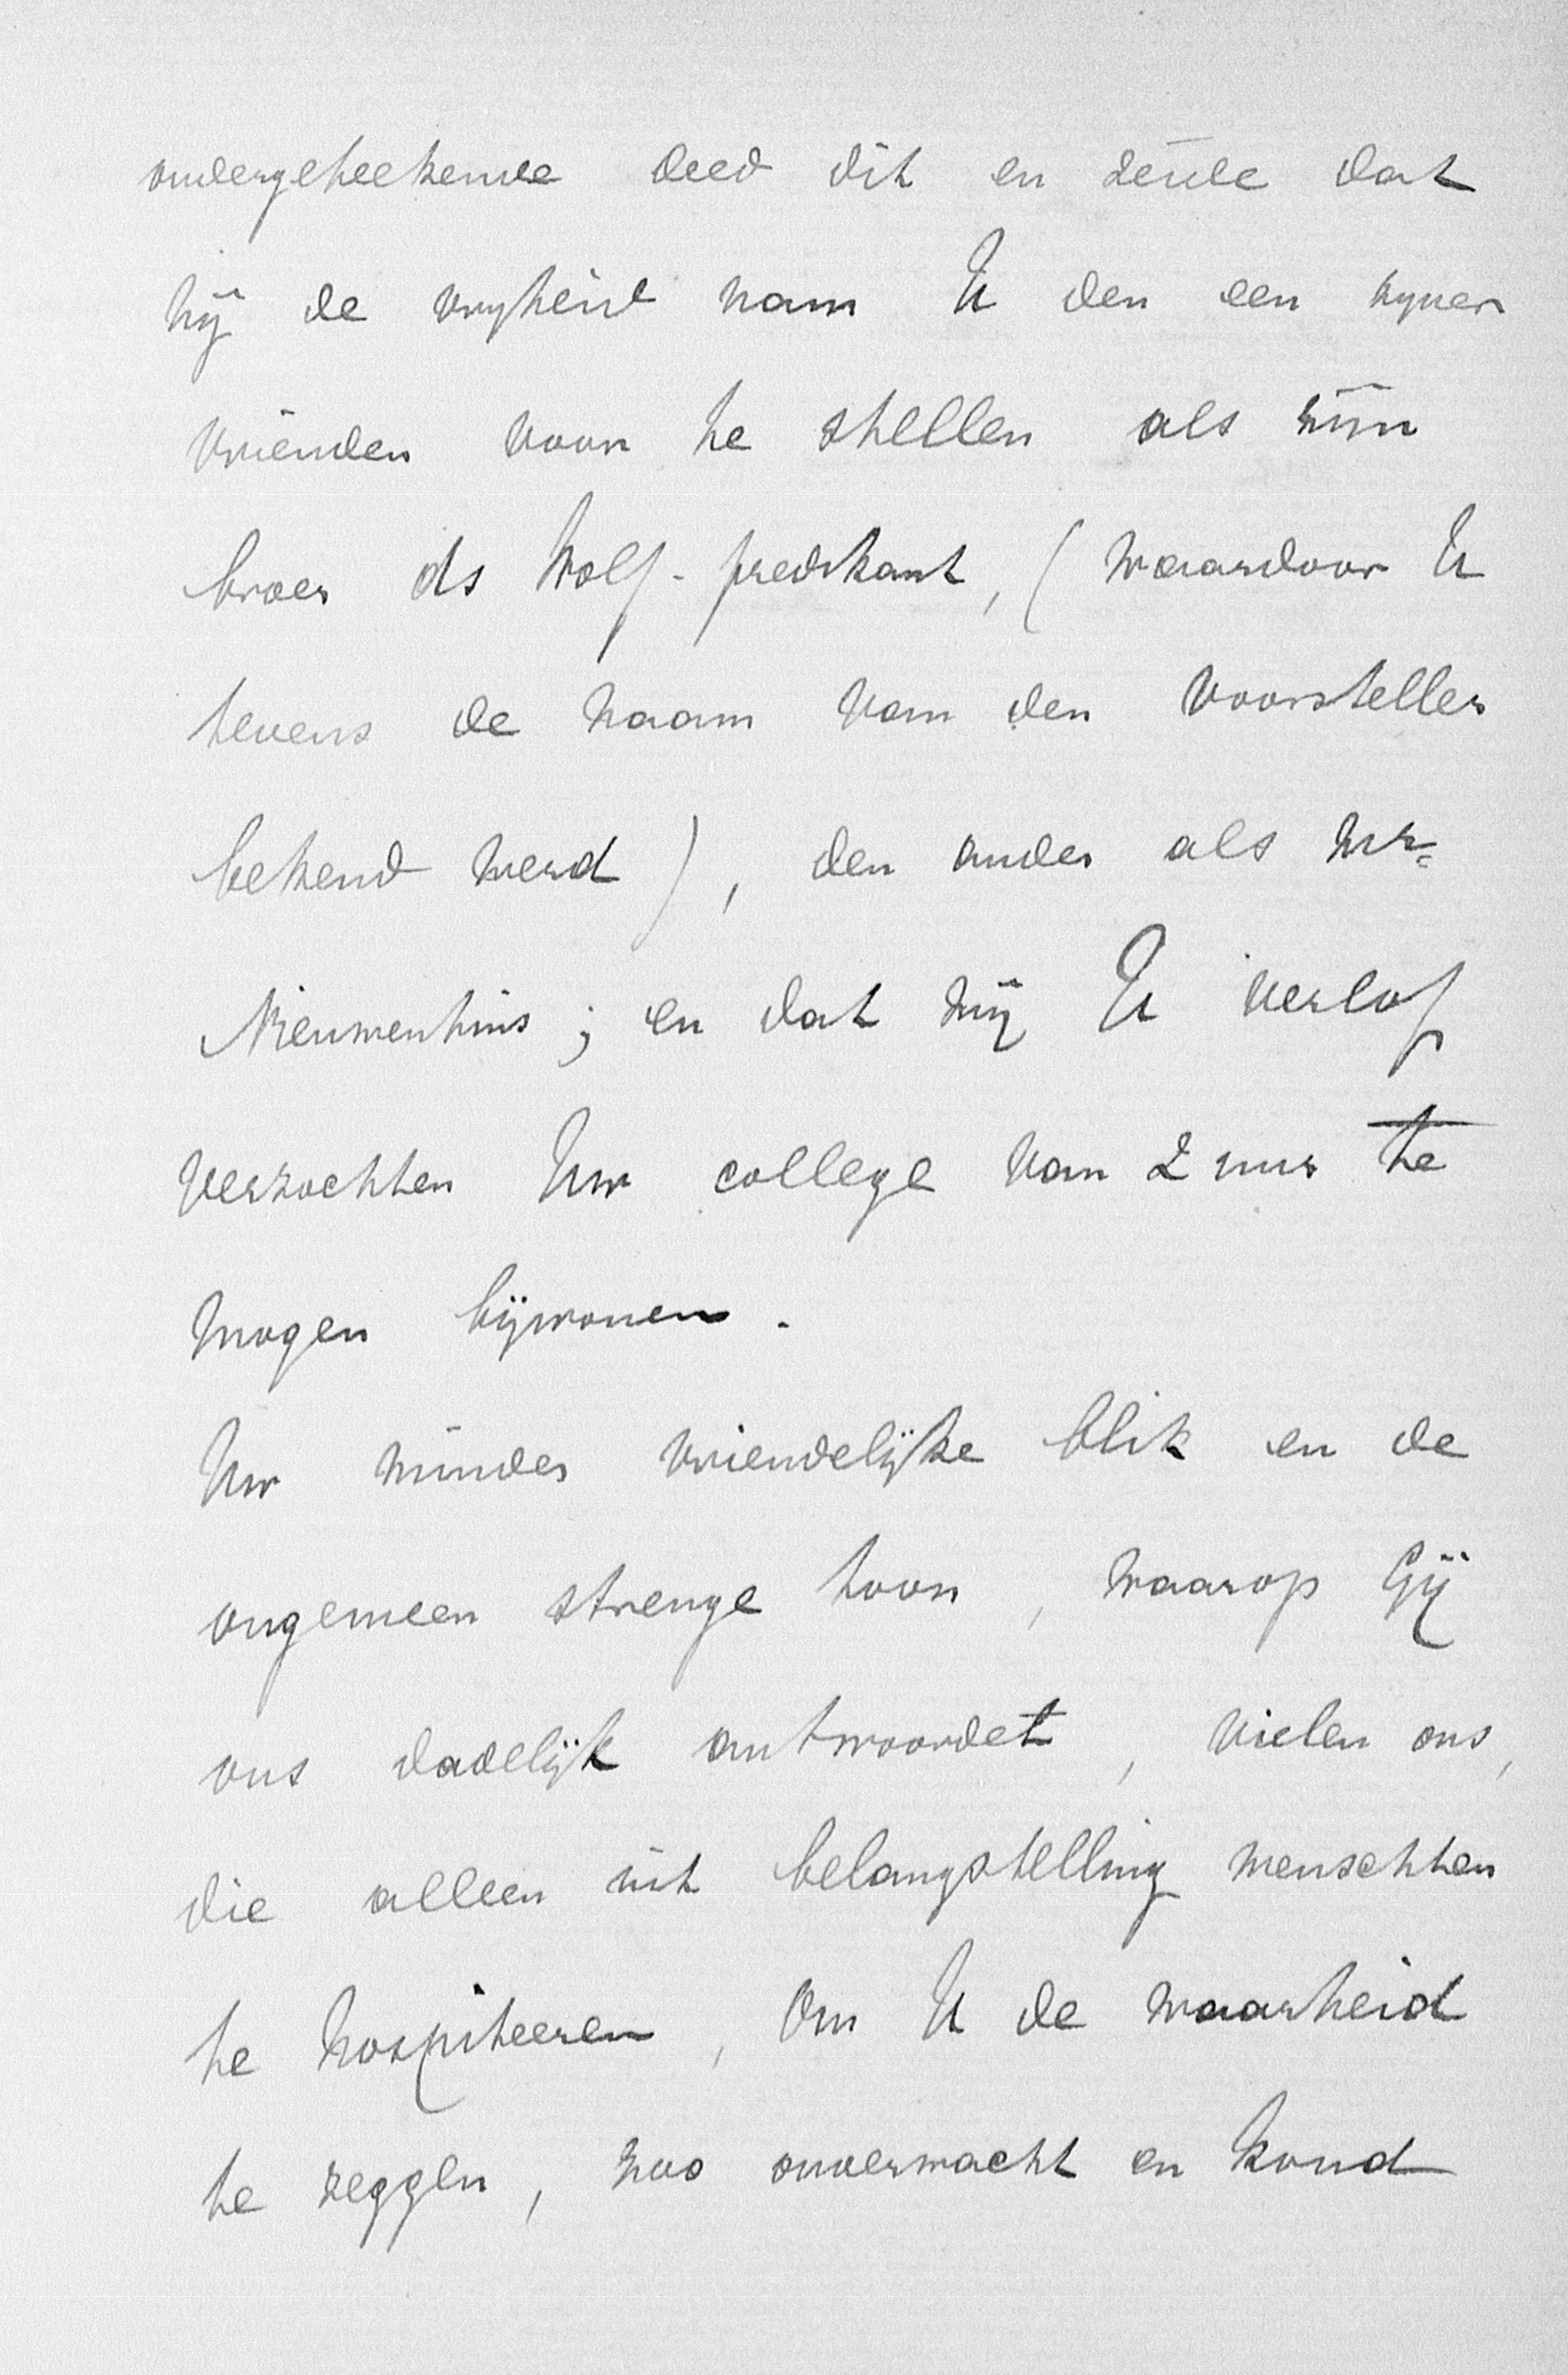 ondergeteekende deed dit en zeide dat
hij de vrijheid nam U den een zijner
vrienden voor te stellen als zijn
broer ds Wolf-predikant, (waardoor U
tevens de naam van den voorsteller
bekend werd), den ander als Mr=
Nieuwenhuis; en dat wij U verlof
verzochten Uw college van 2 uur te
mogen bijwonen.
Uw minder vriendelijke blik en de
ongemeen strenge toon, waarop Gij
ons dadelijk antwoordet, vielen ons,
die alleen uit belangstelling wenschten
te hospiteeren, om U de waarheid
te zeggen, zoo onverwacht en koud